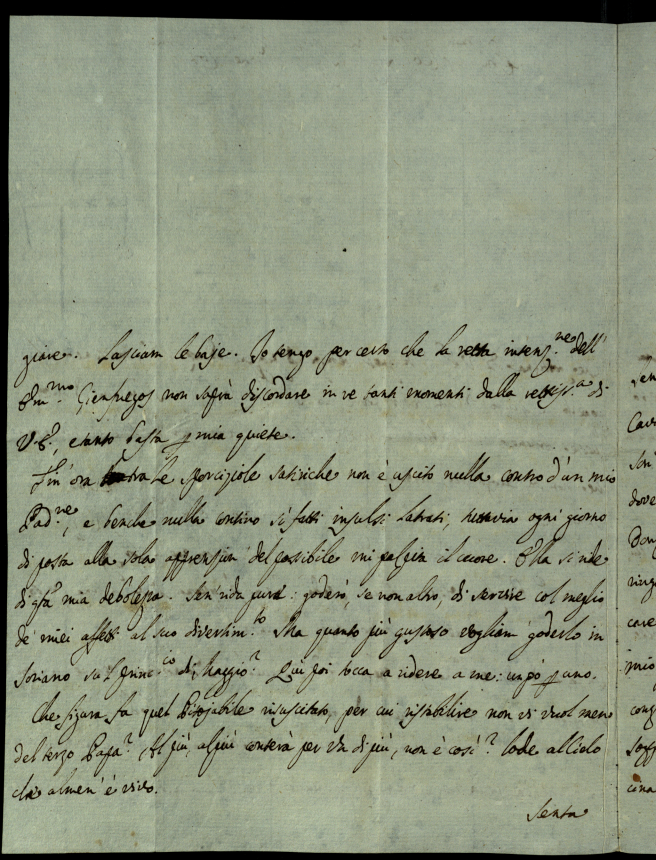 giare. Lasciam le baje. Io tengo per certo che la retta intenz.ne dell'
Em.mo Gienfuegos non saprà discordare in re tanti momenti dalla rettiss.a di
V.E., e tanto basta p mia quiete.
Fin' ora tra le sporcizzole satiriche non è uscito nulla contro d'un mio
Pad.ne, e benche nulla contino sì fatti insulsi latrati, tuttavia ogni giorno
di posta alla sola apprension del possibile mi palpita il cuore. Ella si ride
di qsta mia debolezza. Sen' rida pure: goderò, se non altro, di servire col meglio
de' miei affetti al suo divertim.to Ma quanto più gustoso vogliam goderlo in
Soriano sul princ.io di Maggio? Qui poi tocca a ridere a me: un pò p uno.
Che figura fa quel resuscitato, per cui ristabilire non vi vuol men
del terzo Papa? Al più, al più conterà per Un di più, non è così? Lode al Cielo
che almen' è vivo.
Senta